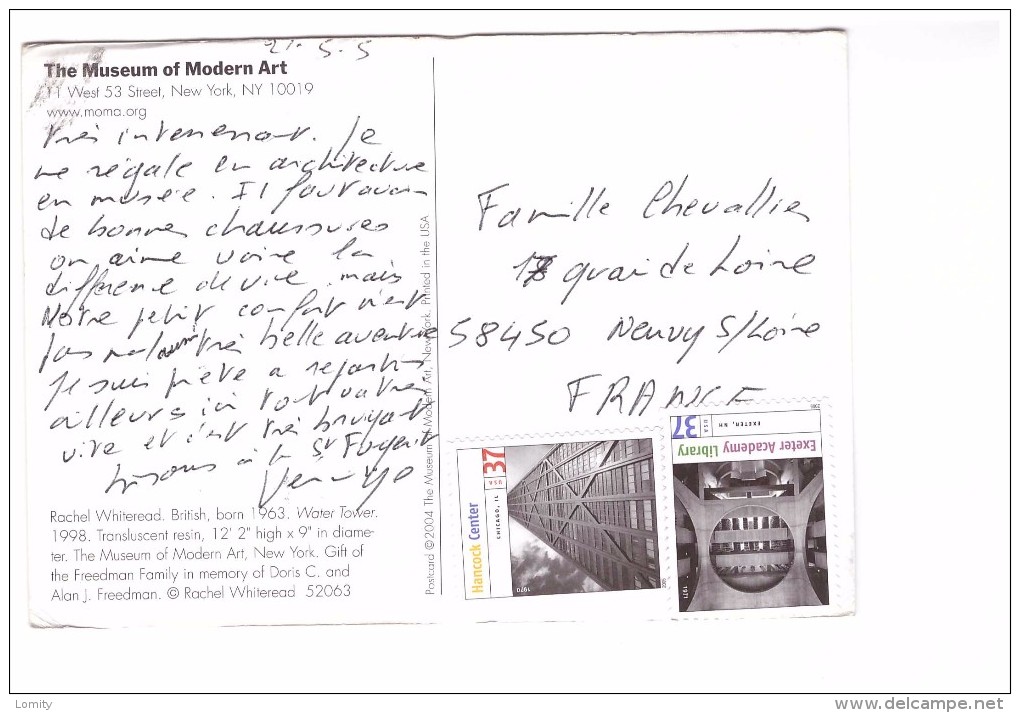 21. 5.5
The Museum of Modern Art
11 West 53 Street, New York, NY 10019
www.moma.org
très interessant. Je
me régale en architecture
en musée. Il faut avoir
de bonnes chaussures
on aime voire la
différence de vie mais
Notre petit confort n'est
pas mal aussi très belle aventure
Je suis prête a repartir
ailleurs ici tout va très
vite et c'est très bruyant
Bisous à la St
Rachel Whiteread. British, born 1963. Water Tower.
1998. Transluscent resin, 12' 2" high x 9" in diame-
ter. The Museum of Modern Art, New York. Gift of
the Freedman Family in memory of Doris C. and
Alan J. Freedman. © Rachel Whiteread 52063
Postcard ©2004 The Museum of Modern Art, New York. Printed in the USA
Famille Chevallier
18 quai de Loire
58450 Neuvy S/Loire
FRANCE
Hancock Center
CHICAGO, IL
USA
37
1970
Exeter Academy Library
EXETER, NH
USA
37
1971
Lomity
www.delcampe.net